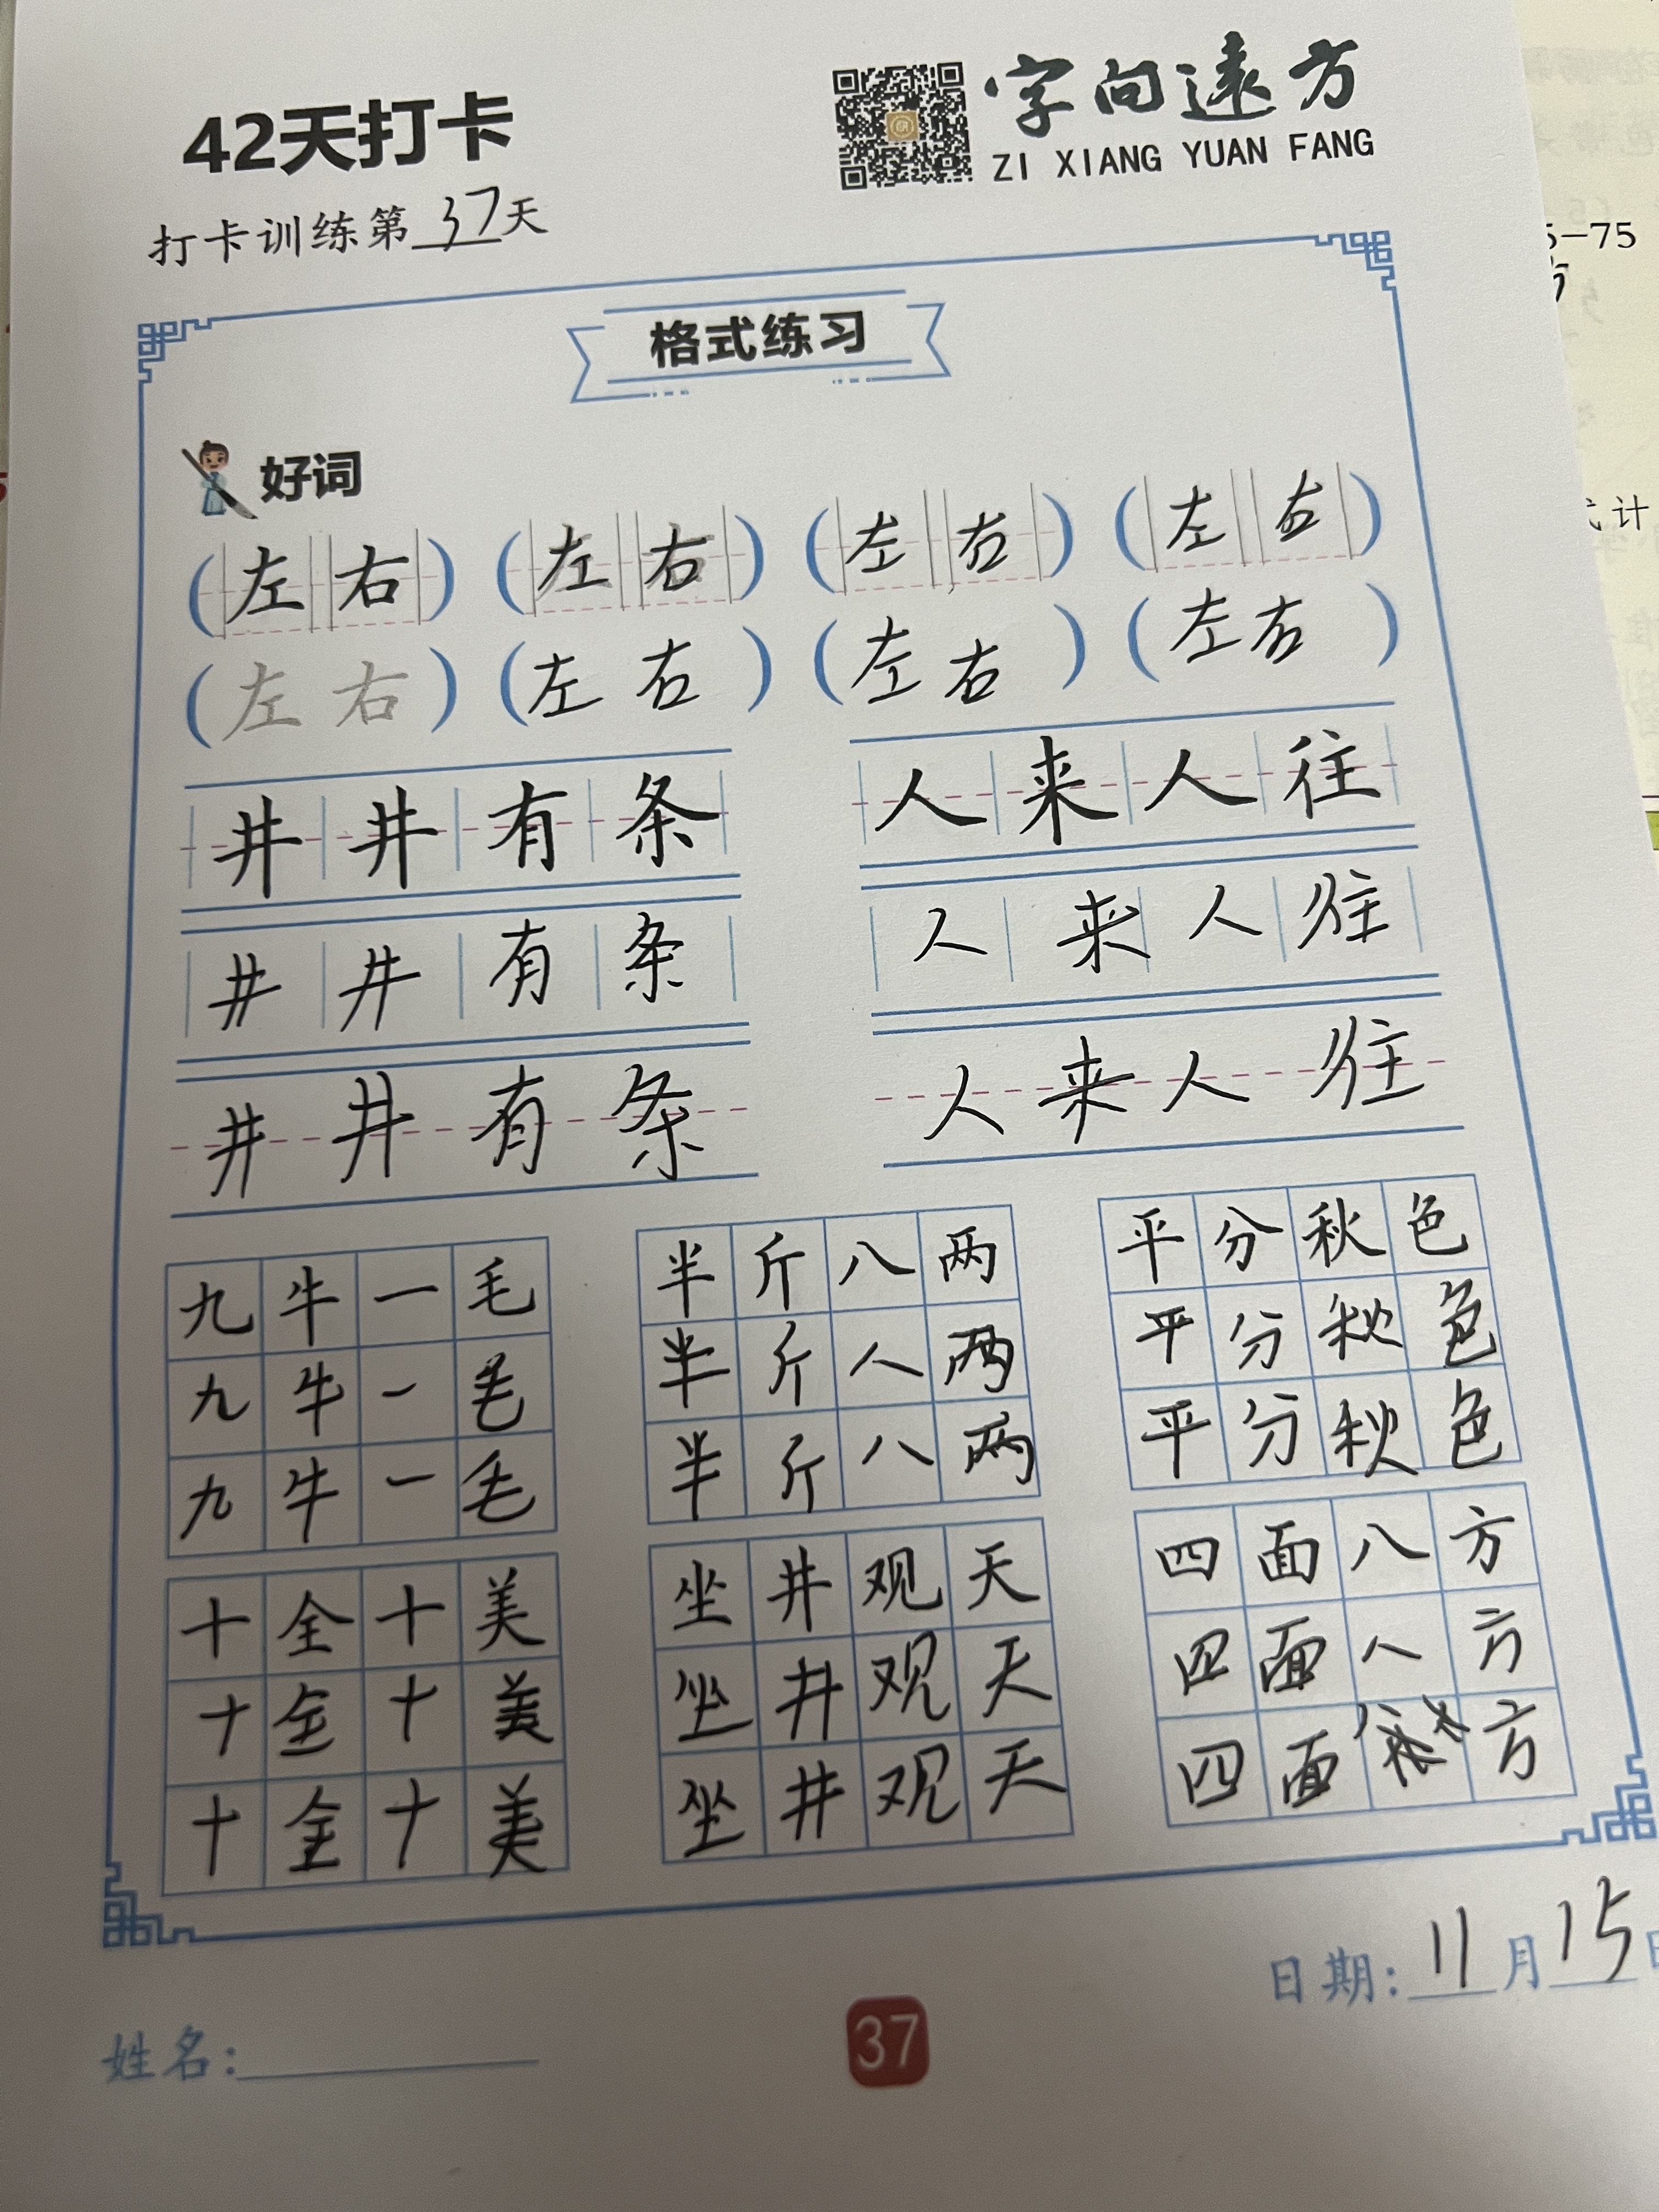 42天打卡
字向远方
ZI XIANG YUAN FANG
打卡训练第37天
格式练习
好词
(左右) (左右) (左右) (左右)
(左右) (左右) (左右) (左右)
井井有条 人来人往
井井有条 人来人往
井井有条 人来人往
九牛一毛 半斤八两 平分秋色
九牛一毛 半斤八两 平分秋色
九牛一毛 半斤八两 平分秋色
十全十美 坐井观天 四面八方
十全十美 坐井观天 四面八方
十全十美 坐井观天 四面 方
日期:11月15日
姓名:
37
5-75
计